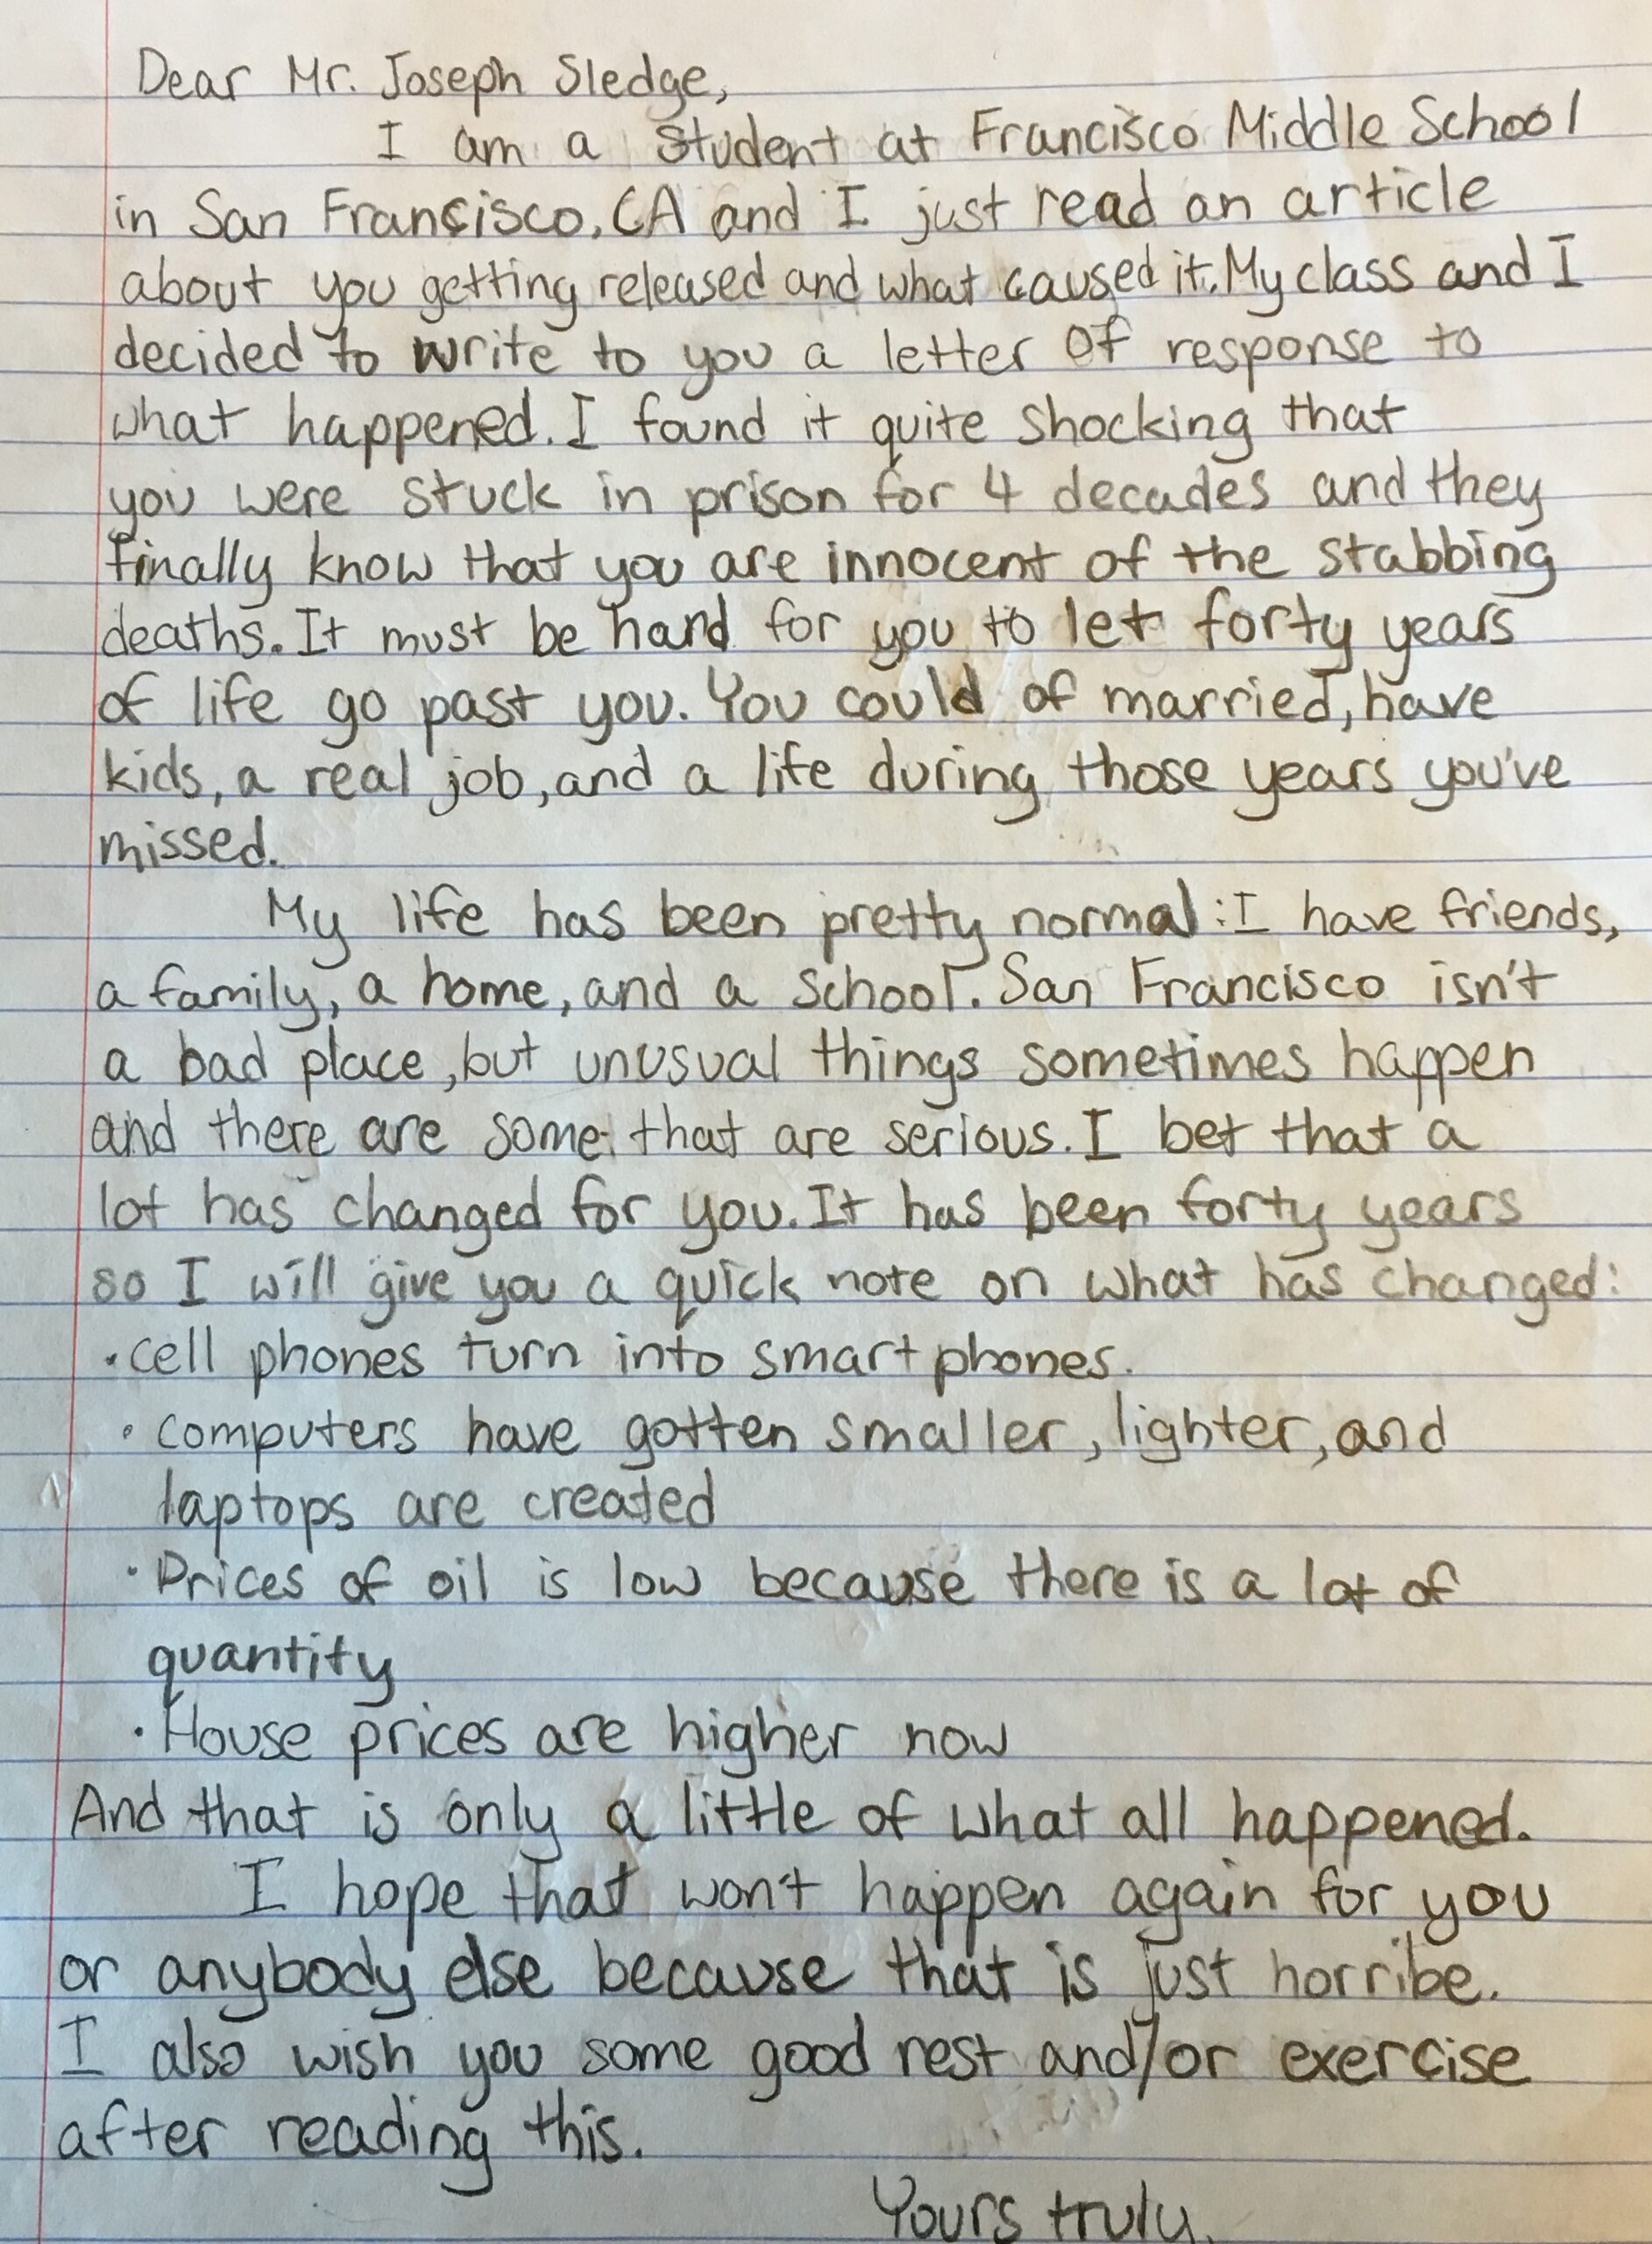 Dear Mr. Joseph Sledge,
I am a student at Francisco Middle School
in San Francisco, CA and I just read an article
about you getting released and what caused it. My class and I
decided to write to you a letter of response to
what happened. I found it quite shocking that
you were stuck in prison for 4 decades and they
finally know that you are innocent of the stabbing
deaths. It must be hard for you to let forty years
of life go past you. You could of married, have
kids, a real job, and a life during those years you've
missed.
My life has been pretty normal: I have friends,
a family, a home, and a school. San Francisco isn't
a bad place, but unusual things sometimes happen
and there are some that are serious. I bet that a
lot has changed for you. It has been forty years
so I will give you a quick note on what has changed:
• cell phones turn into smart phones.
• Computers have gotten smaller, lighter, and
laptops are created
• Prices of oil is low because there is a lot of
quantity
• House prices are higher now
And that is only a little of what all happened.
I hope that won't happen again for you
or anybody else because that is just horribe.
I also wish you some good rest and/or exercise
after reading this.
Yours truly,